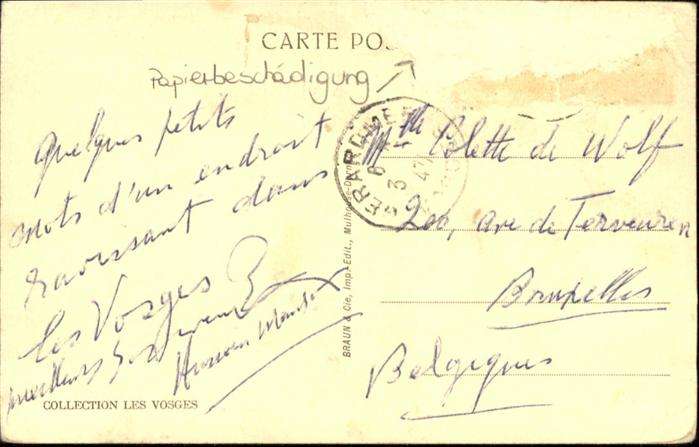 CARTE POS
Papierbeschädigung
Quelques petits
mots d'un endroit
ravissant dans
les Vosges
meilleurs souvenirs
COLLECTION LES VOSGES
BRAUN & Cie, Imp.-Edit., Mulhouse-Dornach
GERARDMER
3
47
Mlle Colette de Wolf
200, ave de Tervueren
Bruxelles
Belgiques